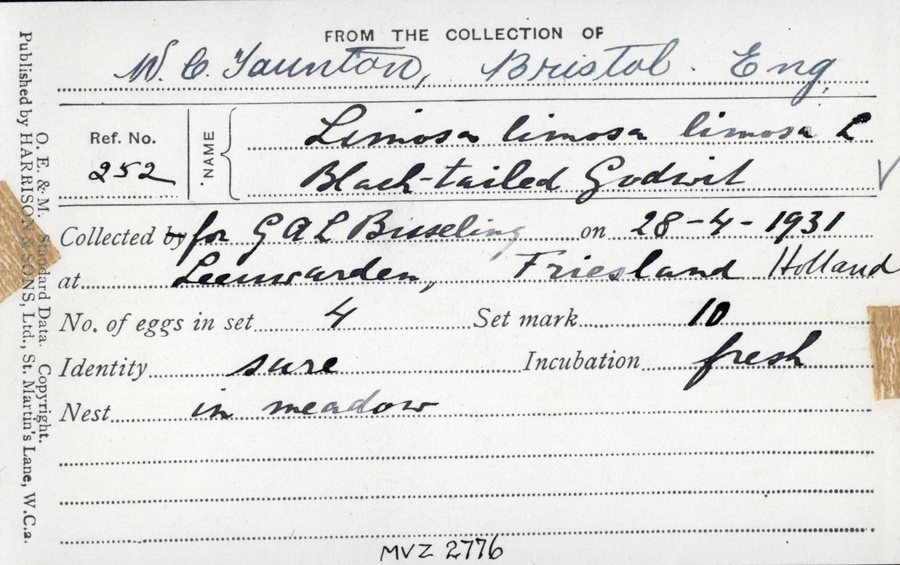 FROM THE COLLECTION OF
W. C. Taunton, Bristol. Eng.
Ref. No.
252
NAME
Limosa limosa limosa L
Black-tailed Godwit
Collected by for G A L Bisseling on 28-4-1931
at Leeuwarden, Friesland Holland
No. of eggs in set 4 Set mark 10
Identity sure Incubation fresh
Nest in meadow
MVZ 2776
O. E. & M. Standard Data. Copyright.
Published by HARRISON & SONS, Ltd., St. Martin's Lane, W.C.2.